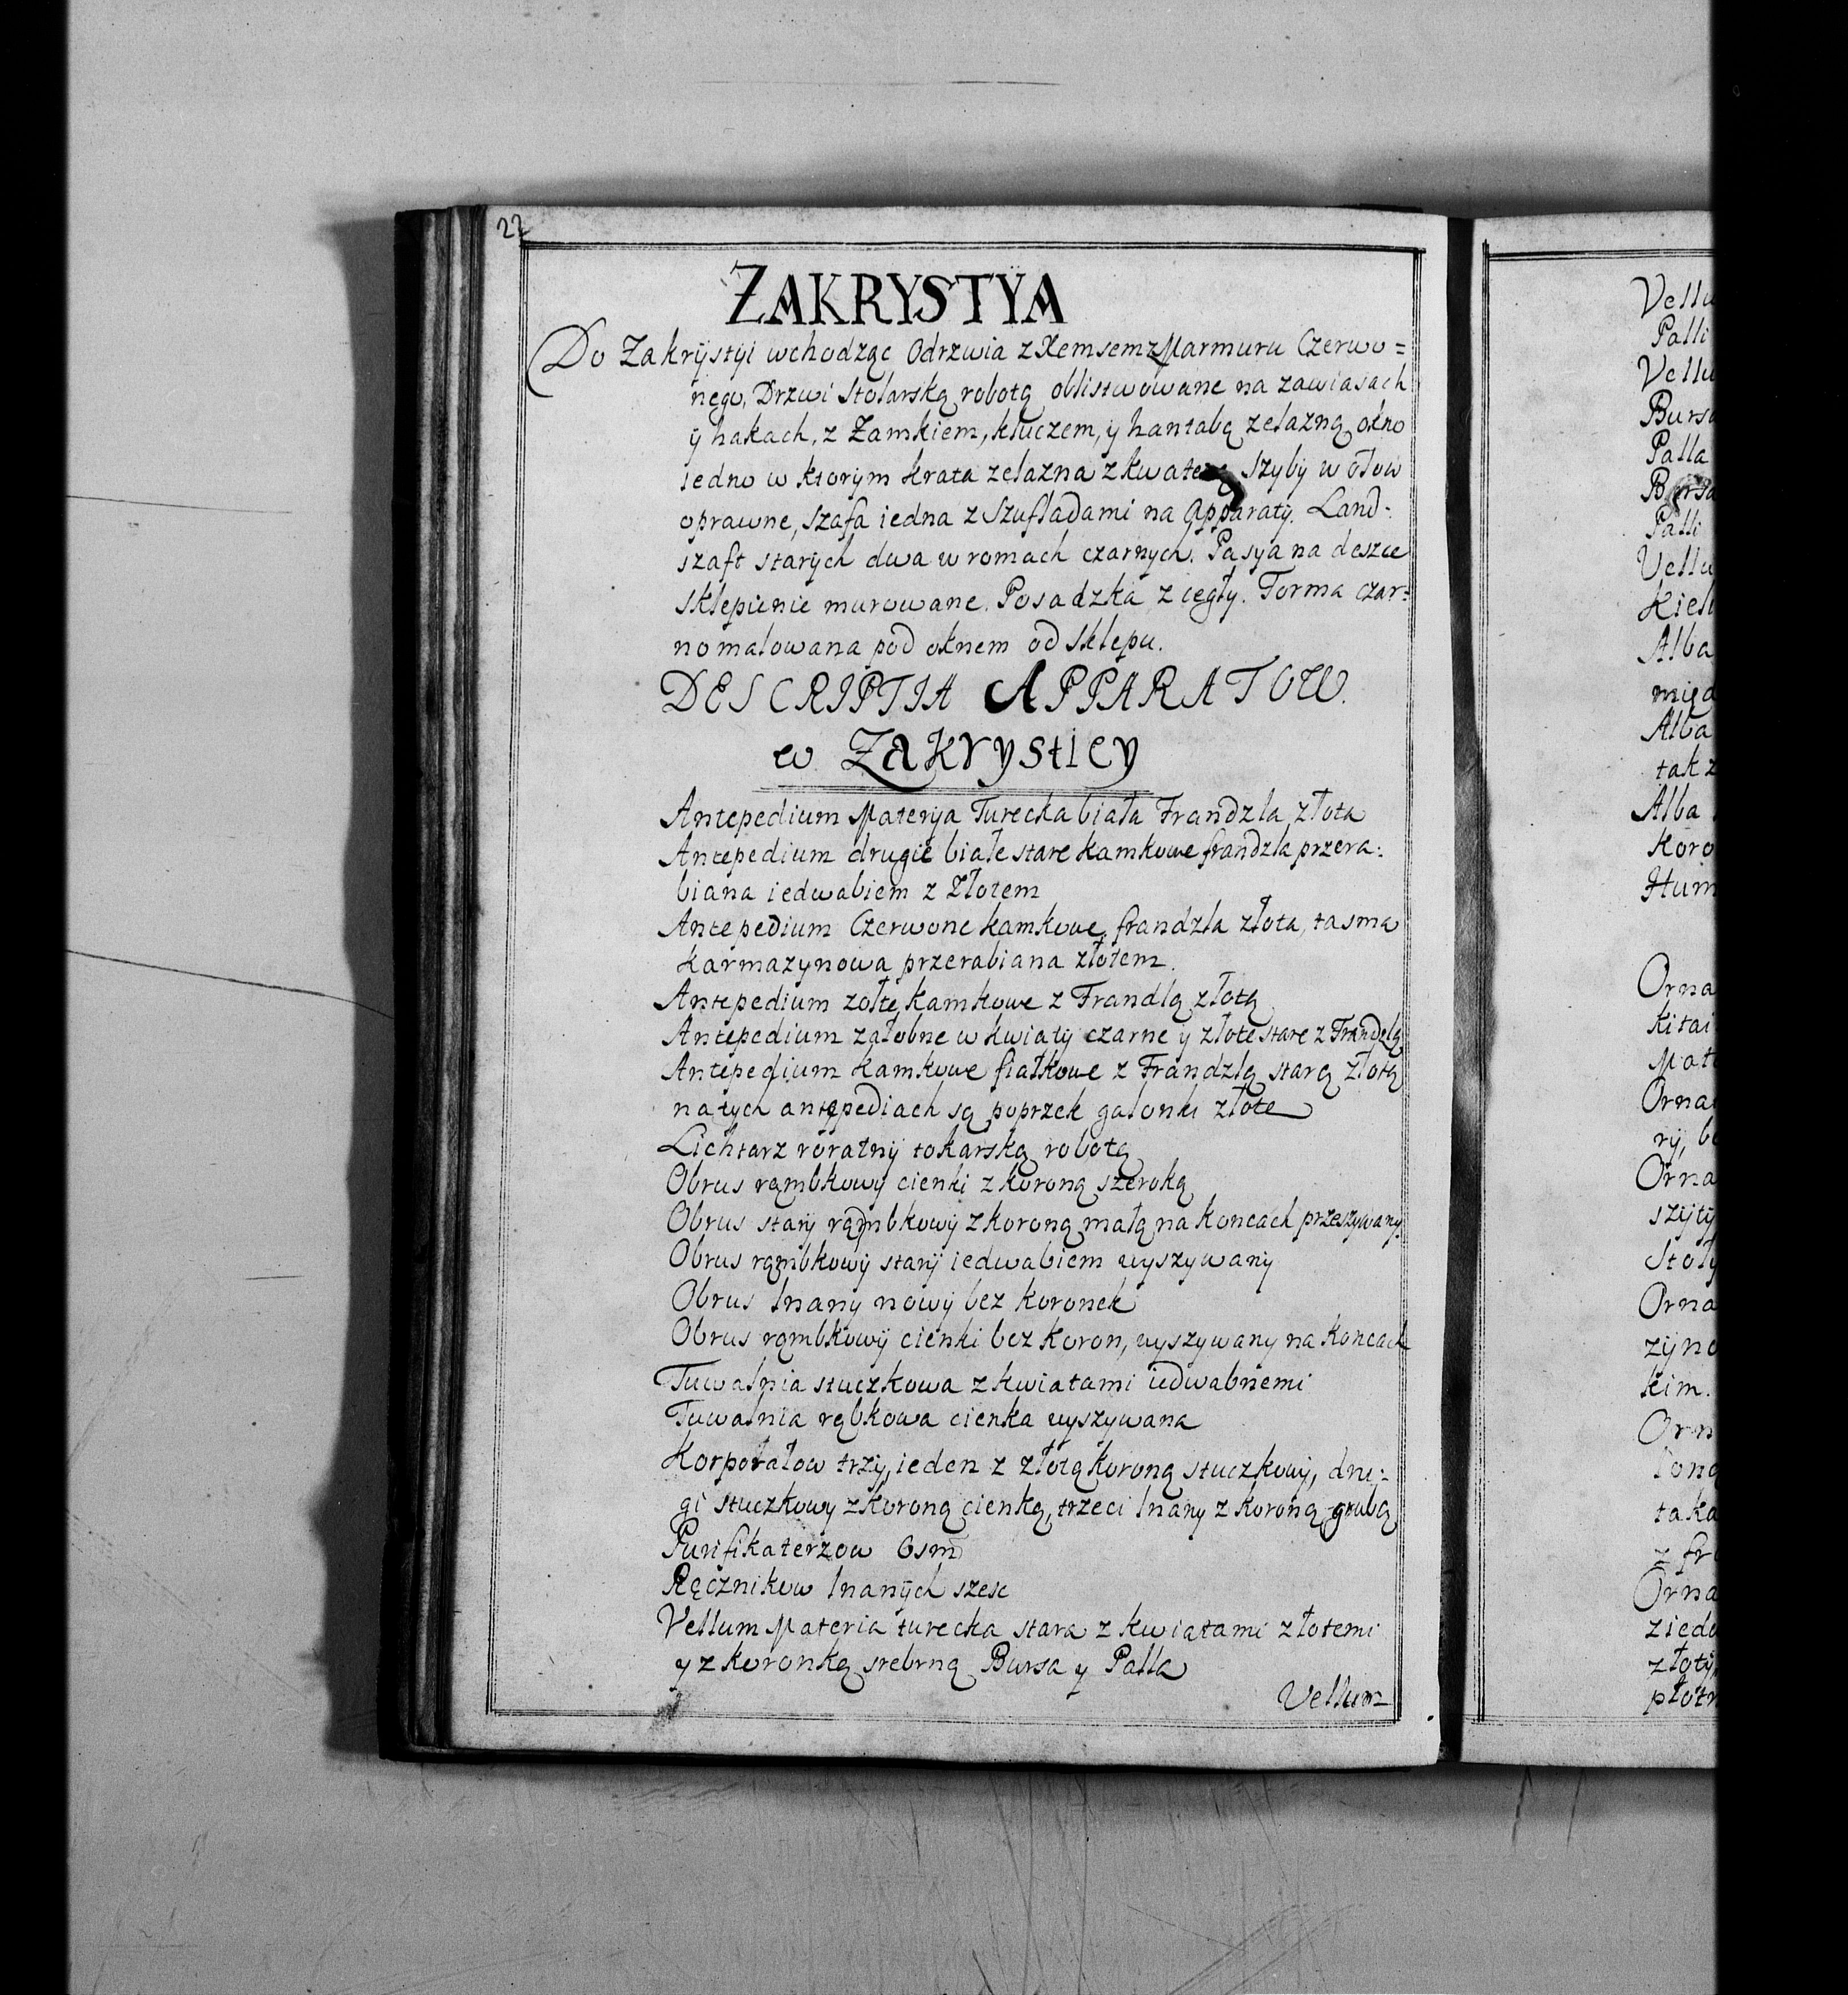 22
ZAKRYSTYA
Do Zakrÿstÿi wchodząc Odrzwia z Xemsem z Marmuru Czerwo=
nego, Drzwi Stolarską robotą oblistwowane na zawiasach
ÿ hakach, z Zamkiem, kluczem, y hantabą zelazną okno
iedno w ktorym krata zelazna z kwaterą Szybÿ w ołow
oprawne, Szafa iedna z Szufladami na Apparatÿ. Land-
szaft starÿch dwa w romach czarnych. Pasya na deszce
Sklepienie murowane. Posadzka z cegłÿ. Torma czar=
no malowana pod oknem od Sklepu.
DESCRIPTIA APPARATOW.
w Zakrysticy
Antepedium Materÿa Turecka biała Frandzla złota
Antepedium drugie białe stare kamkowe frandzla przera:
biana iedwabiem z złotem
Antepedium Czerwone kamkowe, frandzla złota, tasma
karmazynowa przerabiana złotem.
Antepedium zołte kamkowe z Frandlą złotą
Antepedium załobne w kwiatÿ czarne ÿ złote stare z Frandzlą
Antepedium kamkowe fiałkowe z Frandzlą starą złotą
na tych antępediach są poprzek galonki złote
Lichtarz roratnÿ tokarską robotą
Obrus rąmbkowÿ cienki z koroną szeroką
Obrus starÿ rąmbkowÿ z koroną małą na koncach przeszywanÿ
Obrus rąmbkowÿ starÿ iedwabiem wyszywanÿ
Obrus lnanÿ nowÿ bez koronek
Obrus rąmbkowÿ cienki bez koron, wyszywany na koncach
Tuwalnia stuczkowa z kwiatami iedwabnemi
Tuwalnia rąbkowa cienka wyszywana
Korporałow trzÿ, ieden z złotą koroną stuczkowÿ, dru:
gi stuczkowy z koroną cienką, trzeci lnany z koroną grubą
Purifikaterzow Osm
Ręcznikow lnanÿch szesc
Vellum Materia turecka stara z kwiatami złotemi
y z koronką srebrną Bursa y Palla
Vellum
Vellu
Palli
Vellu
Bursa
Palla
Bursa
Palli
Vellu
Kiel
Alba
międ
Alba
tak z
Alba
koro
Hum
Orna
kitai
Mate
Orna
rÿ, b
Orna
szÿtÿ
Stoły
Orna
zÿno
kim.
Orn
long
taka
z fr
Orna
ziedw
złotÿ
płotn